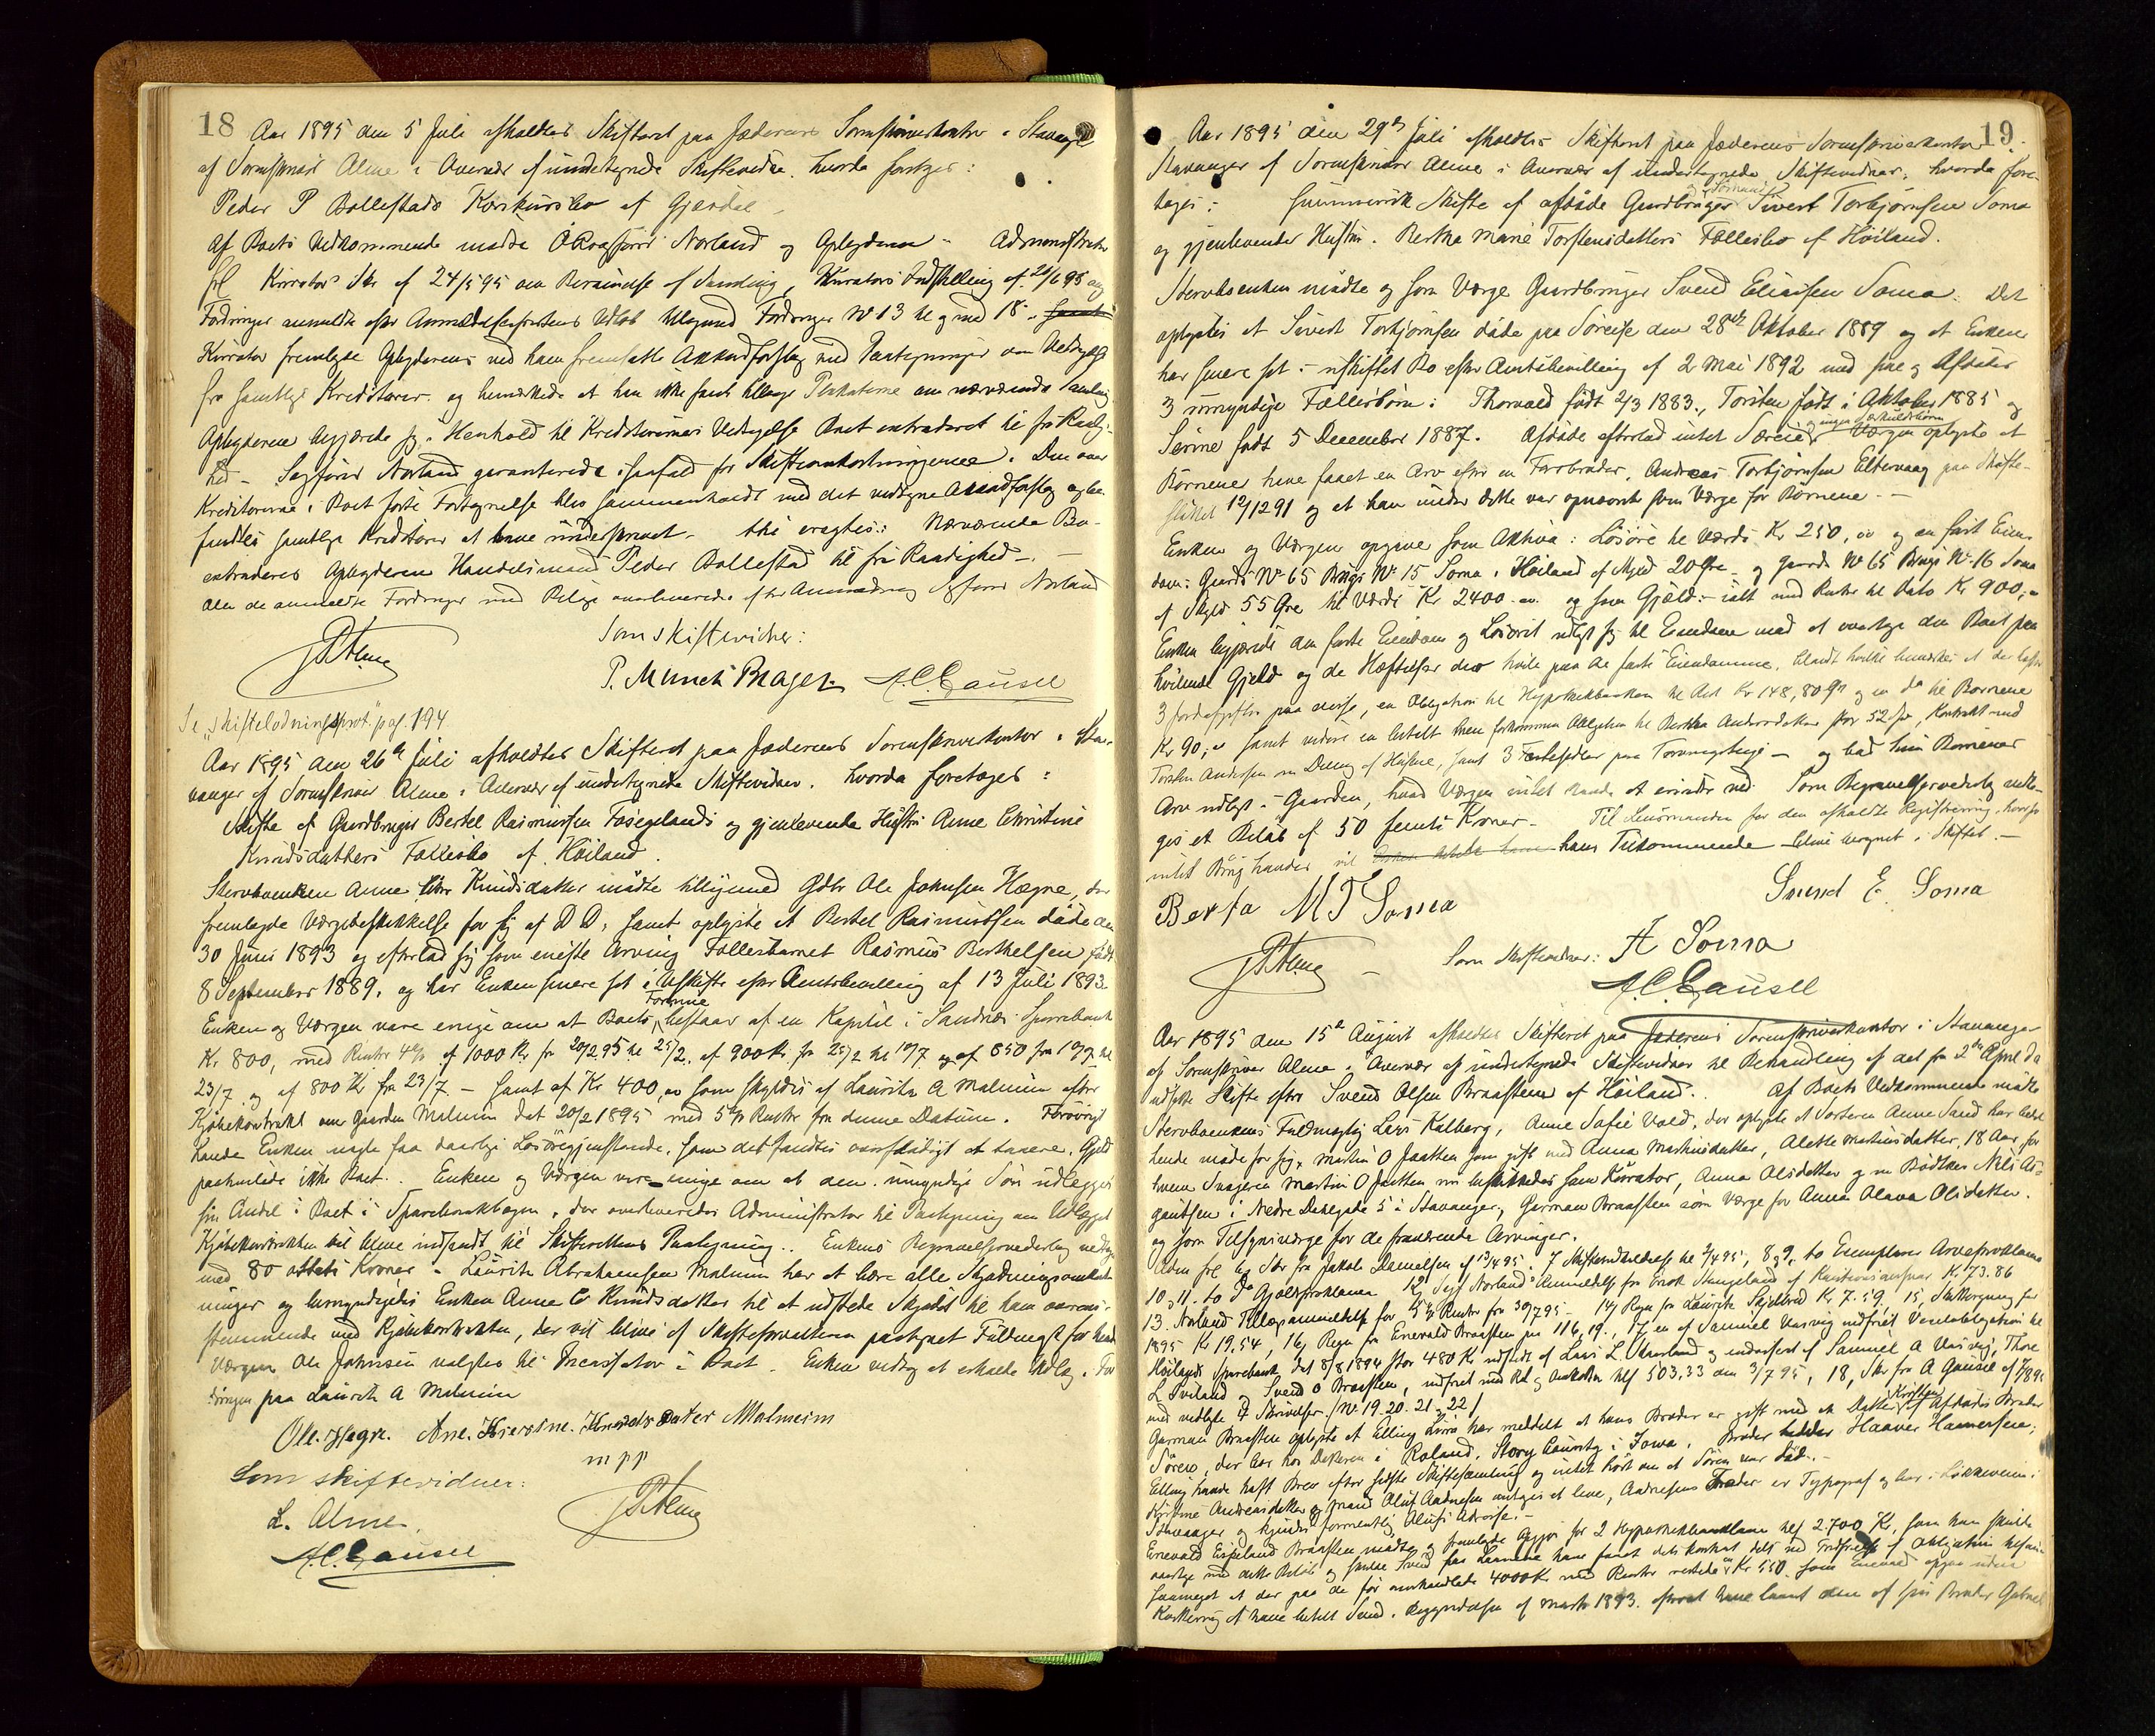 18
Aar 1895 den 5 Juli afholdtes Skifteret paa Jæderens Sorenskriverkontor i Stavanger
af Sorenskriver Alme i Overvær af undertegnede Skiftevidner. hvorda foretoges:
Peder P Bollestads Konkursbo af Gjesdal
Af Boets Vedkommende mødte Norland og Opbyderen
frl Kurators Skr af 24/5 95 om Berammelse af Samling, Kurators Indstilling af 20/6 95 ang
Fordringer anmeldte efter Anmeldelsesfristens Udløb Fordringer No 13 til og med 18
Kurator fremlagde Opbyderens ved ham fremsatte Akkordforslag med Paategninger om Vedtagelse
fra samtlige Kreditorer og bemærkede at han ikke fandt nærværende Samling
Opbyderen begjærede sig i Henhold til Kreditorernes Vedtagelse Boet extraderet til fri Raadig-
hed - Sagfører Norland garanterede isaafald for Skifteomkostningerne. Den over
Kreditorerne i Boet førte Fortegnelse blev sammenholdt med det vedtagne Akkordforslag og be-
fandtes samtlige Kreditorer at have underskrevet. thi eragtes: Nærværende Bo
extraderes Opbyderen Handelsmand Peder Bollestad til fri Raadighed.
Alle de anmeldte Fordringer med Bilage overleveredes efter Anmodning Sagfører Norland
Som skiftevidner:
P. Munch Brager A.C. Gausel
Se "Skifteslodningsprot." pag. 194
Aar 1895 den 26de Juli afholdtes Skifteret paa Jæderens Sorenskriverkontor i Sta-
vanger af Sorenskriver Alme i Overvær af undertegnede Skiftevidner. hvorda foretoges:
Skifte af Gaardbruger Bertel Rasmussen Fosegelands og gjenlevende Hustru Anne Christine
Knudsdatters Fællesbo af Høiland.
Stervboenken Anne Knudsdatter mødte tilligemed Gdbr Ole Johnsen Høgne, der
fremlagde Værgebeskikkelse for sig af D D, samt oplyste at Bertel Rasmussen døde den
30 Juni 1893 og efterlod sig som eneste Arving Fællesbarnet Rasmus Berthelsen født
8 September 1889, og har Enken senere sat i Uskifte efter Amtsbevilling af 13 Juli 1893.
Enken og Værgen vare enige om at Boets Formue bestaar af en Kapital i Sandnæs Sparebank
Kr. 800, med Renter 4% af 1000 Kr. fra 20/2 95 til 25/2. af 900 Kr fra 25/2 til 19/7 og af 850 fra 19/7 til
23/7 og af 800 Kr fra 23/7 - samt af Kr. 400,00 som skyldes af Lauritz A Malmin efter
Kjøbekontrakt om Gaarden Malmin dat 20/2 1895 med 5% Renter fra denne Datum. Forøvrigt
havde Enken nogle faa daarlige Løsøregjenstande, som det fandtes overflødigt at taxere. Gjeld
paahvilede ikke Boet. Enken og Værgen vare enige om at den umyndige Søn udlægges
sin Andel i Boet i Sparebankbogen, der overleveredes Administrator til Paategning om Udlægget
Kjøbekontrakten vil blive indsendt til Skifterettens Paategning. Enkens Begravelsesvederlag vedtoges
med 80 otteti Kroner. Lauritz Abrahamsen Malmin har at bære alle Skjødningsomkost-
ninger og bemyndigedes Enken Anne C Knudsdatter til at udstede Skjødet til ham overens-
stemmende med Kjøbekontrakten, der vil blive af Skifteforvalteren paategnet Fuldmagt for hende
Værgen Ole Johnsen valgtes til Incassator i Boet. Enken vedtog at erholde Udlæg i For-
dringen paa Lauritz A Malmin
Ole Høgne. Ane. Kierstne. Knudsdater Malmeim
m p p
Som skiftevidner:
L. Alme
A.C. Gausel
19
Aar 1895 den 29de Juli afholdtes Skifteret paa Jæderens Sorenskriverkontor i
Stavanger af Sorenskriver Alme i Overvær af undertegnede Skiftevidner, hvorda fore-
toges: Summarisk Skifte af afdøde Gaardbruger og Sømand Sivert Torbjørnsen Soma
og gjenlevende Hustru Bertha Marie Torstensdatters Fællesbo af Høiland.
Stervboenken mødte og som Værge Gaardbruger Svend Eliassen Soma. Det
oplystes at Sivert Torbjørnsen døde paa Søreise den 28de Oktober 1889 og at Enken
har senere sat i uskiftet Bo efter Amtsbevilling af 2 Mai 1892 med sine og Afdødes
3 umyndige Fællesbørn: Thorvald født 2/3 1883., Torsten født i Oktober 1885 og
Serine født 5 December 1887. Afdøde efterlod intet Særeie og ingen særkuldsbørn Værgen oplyste at
Børnene have faaet en Arv efter en Farbroder, Andreas Torbjørnsen Eltervaag paa Skifte-
sluttet 12/12 91 og at han under dette var opnævnt som Værge for Børnene. -
Enken og Værgen opgave som Aktiva: Løsøre til Værdi Kr 250,00 og en fast Eien-
dom: Gaards No 65 Brugs No 15 Soma i Høiland af Skyld 20 Øre og Gaards No 65 Brugs No 16 Soma
af Skyld 55 Øre til Værdi Kr 2400.00 og som Gjæld: ialt med Renter til Dato Kr 900,00
Enken begjærede den faste Eiendom og Løsøret udlagt sig til Eiendom mod at overtage den Boet paa
hvilende Gjeld og de Hæftelser der hvile paa de faste Eiendomme, blandt hvilke bemærkes at der hæfter
3 Fordelsgifter paa disse, en Obligation til Hypothekbanken til Rest Kr 148,80 Øre og en do til Børnene
Kr 90,00 samt videre en betalt men forkommen Obligation til Bertha Andersdatter stor 52 Spd, Kontrakt med
Torsten Andersen om Deling af Husene, samt 3 Fæstesedler paa Torvmyrteig - og bad hun Børnenes
Arv udlagt i Gaarden, hvad Værgen intet havde at erindre ved. Som Begravelsesvederlag vedto-
ges et Beløb af 50 femti Kroner. Til Lensmanden for den afholdte Registrering, hvorfor
intet Brug havdes vil hans Tilkommende blive beregnet i Skiftet. -
Berta M T Soma Svend E. Soma
Som Skiftevidner: A Soma
A.C. Gausel
Aar 1895 den 15de August afholdtes Skifteret paa Jæderens Sorenskriverkontor i Stavanger
af Sorenskriver Alme i Overvær af undertegnede Skiftevidner til Behandling af det fra 2den April da
udsatte Skifte efter Svend Olsen Braasten af Høiland. Af Boets Vedkommende mødte
Stervboenkens Fuldmægtig Lars Kalberg, Anne Sofie Vold, der oplyste at Søsteren Anne Sand har bedt
hende møde for sig, Martin O Jaatten som gift med Anna Martinsdatter, Alette Martinsdatter, 18 Aar, for
hvem Svogeren Martin O Jaatten nu beskikkedes som Kurator, Anna Olsdatter og nu Bødtker Nils Aa-
gautsen i Nedre Dalegade 5 i Stavanger, German Braasten som Værge for Anna Olava Olsdatter
og som Tilsynsværge for de fraværende Arvinger.
Adm frl 6, Skr fra Jakob Danielsen af 13/4 95. 7 Skifteudskrift til 2/4 95, 8 og 9, to Exemplarer Arveproklama
10 og 11. to do Gjældsproklama 12, Sagf Norlands Anmeldelse fra Enok Stangeland af Kautionsansvar Kr. 73.86
13. Norland Tillægsanmeldelse for 5% Renter fra 30/7 95 - 14, Regn fra Lauritz Skjelbred Kr 7.59, 15, Skatteregning for
1895 Kr 19,54, 16, Regn fra Enevald Braasten paa 116,19., 17, en af Samuel Varsvig indfriet Vexelobligation til
Høilands Sparebank dat 8/8 1894 stor 480 Kr udstedt af Lars L. Skaarland og endosseret af Samuel A Varsvig, Thore
L Sviland og Svend O Braasten, indfriet med Rt og Omkostn Kr 503,33 den 3/7 95, 18, Skr fra A Gausel af 7/8 95
med vedlagte 4 Skrivelser (No 19. 20. 21. 22)
German Braasten oplyste at Elling Lura har meldt at hans Broder er gift med en Datter Kirsten af Afdødes Broder
Sören, der bor hos Datteren i Roland, Story County i Iowa. Broder hedder Haaver Haaversen;
Elling havde havt Brev efter sidste Skiftesamling og intet hørt om at Søren var død. -
Kirstine Andreasdatter og Mand Oluf Andresen antages at leve, Andresens Broder er Typograf og bor i Løkkeveien i
Stavanger og kjender formentlig Olufs Adresse. -
Enevald Espeland Braasten mødte og fremlagde Opgjør for 2 Hypothekbanklaan Kr 2.700 Kr, som han skulde
overtage med dette Beløb og skulde Svend før Laanene have faaet dels kontant dels ved Indfrielse af Obligation
saameget at der paa de før omhandlede 4000 Kr. med Renter restede Kr 550, som Enevald opgav uden
Kvittering at have betalt Svend i Begyndelsen af Marts 1893. efter at have laant dem af sin Broder Gabriel